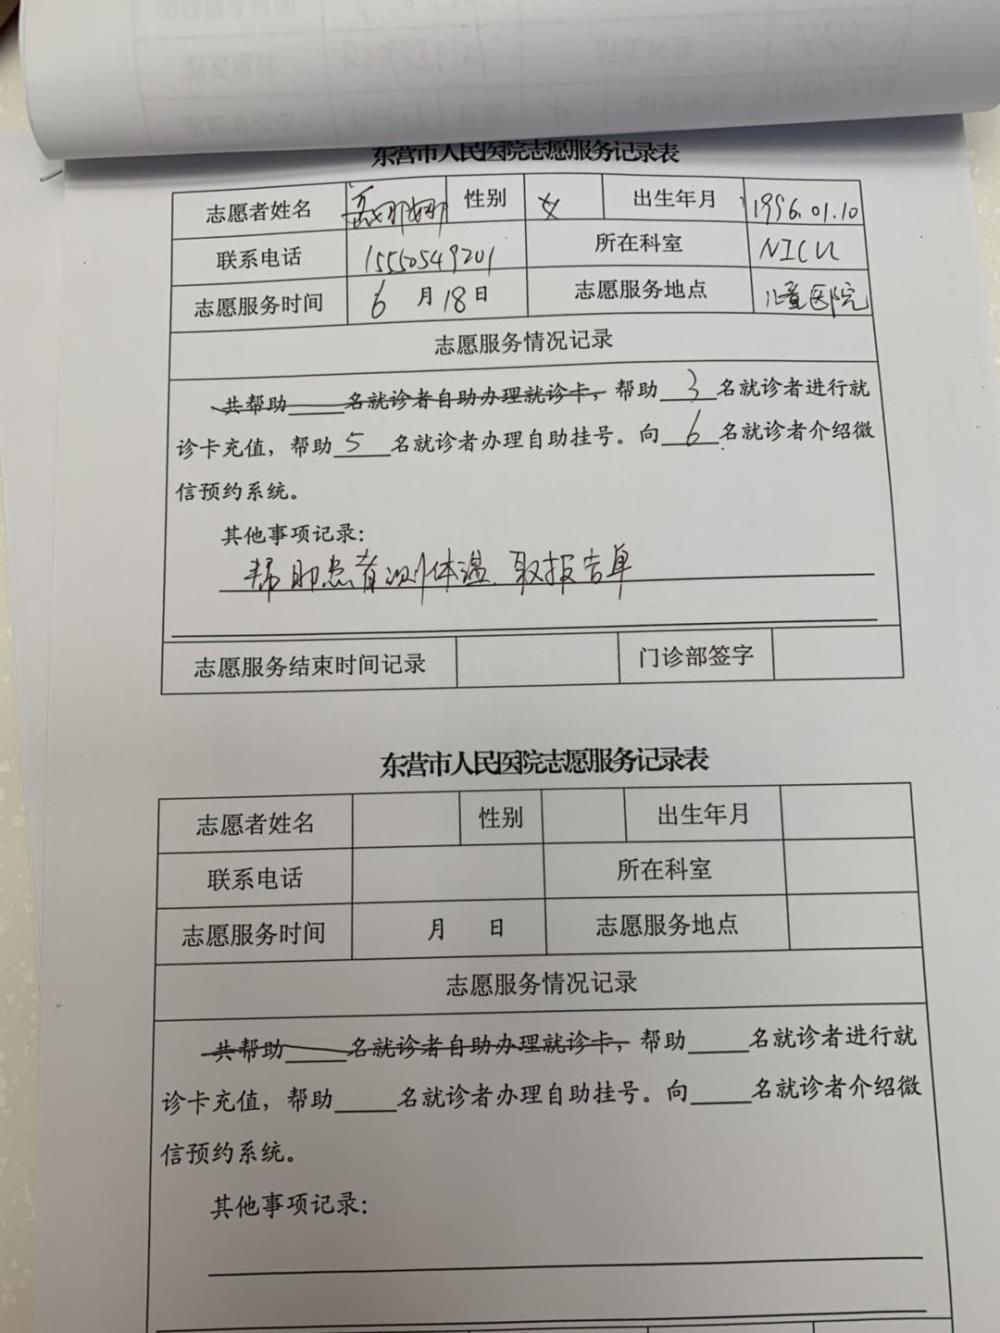 东营市人民医院志愿服务记录表
志愿者姓名 娜娜 性别 女 出生年月 1996.01.10
联系电话 15550549201 所在科室 NICU
志愿服务时间 6月18日 志愿服务地点 儿童医院
志愿服务情况记录
共帮助____名就诊者自助办理就诊卡，帮助 3 名就诊者进行就
诊卡充值，帮助 5 名就诊者办理自助挂号。向 6 名就诊者介绍微
信预约系统。
其他事项记录：
帮助患者测体温、取报告单
志愿服务结束时间记录 门诊部签字
东营市人民医院志愿服务记录表
志愿者姓名 性别 出生年月
联系电话 所在科室
志愿服务时间 月 日 志愿服务地点
志愿服务情况记录
共帮助____名就诊者自助办理就诊卡，帮助____名就诊者进行就
诊卡充值，帮助____名就诊者办理自助挂号。向____名就诊者介绍微
信预约系统。
其他事项记录：